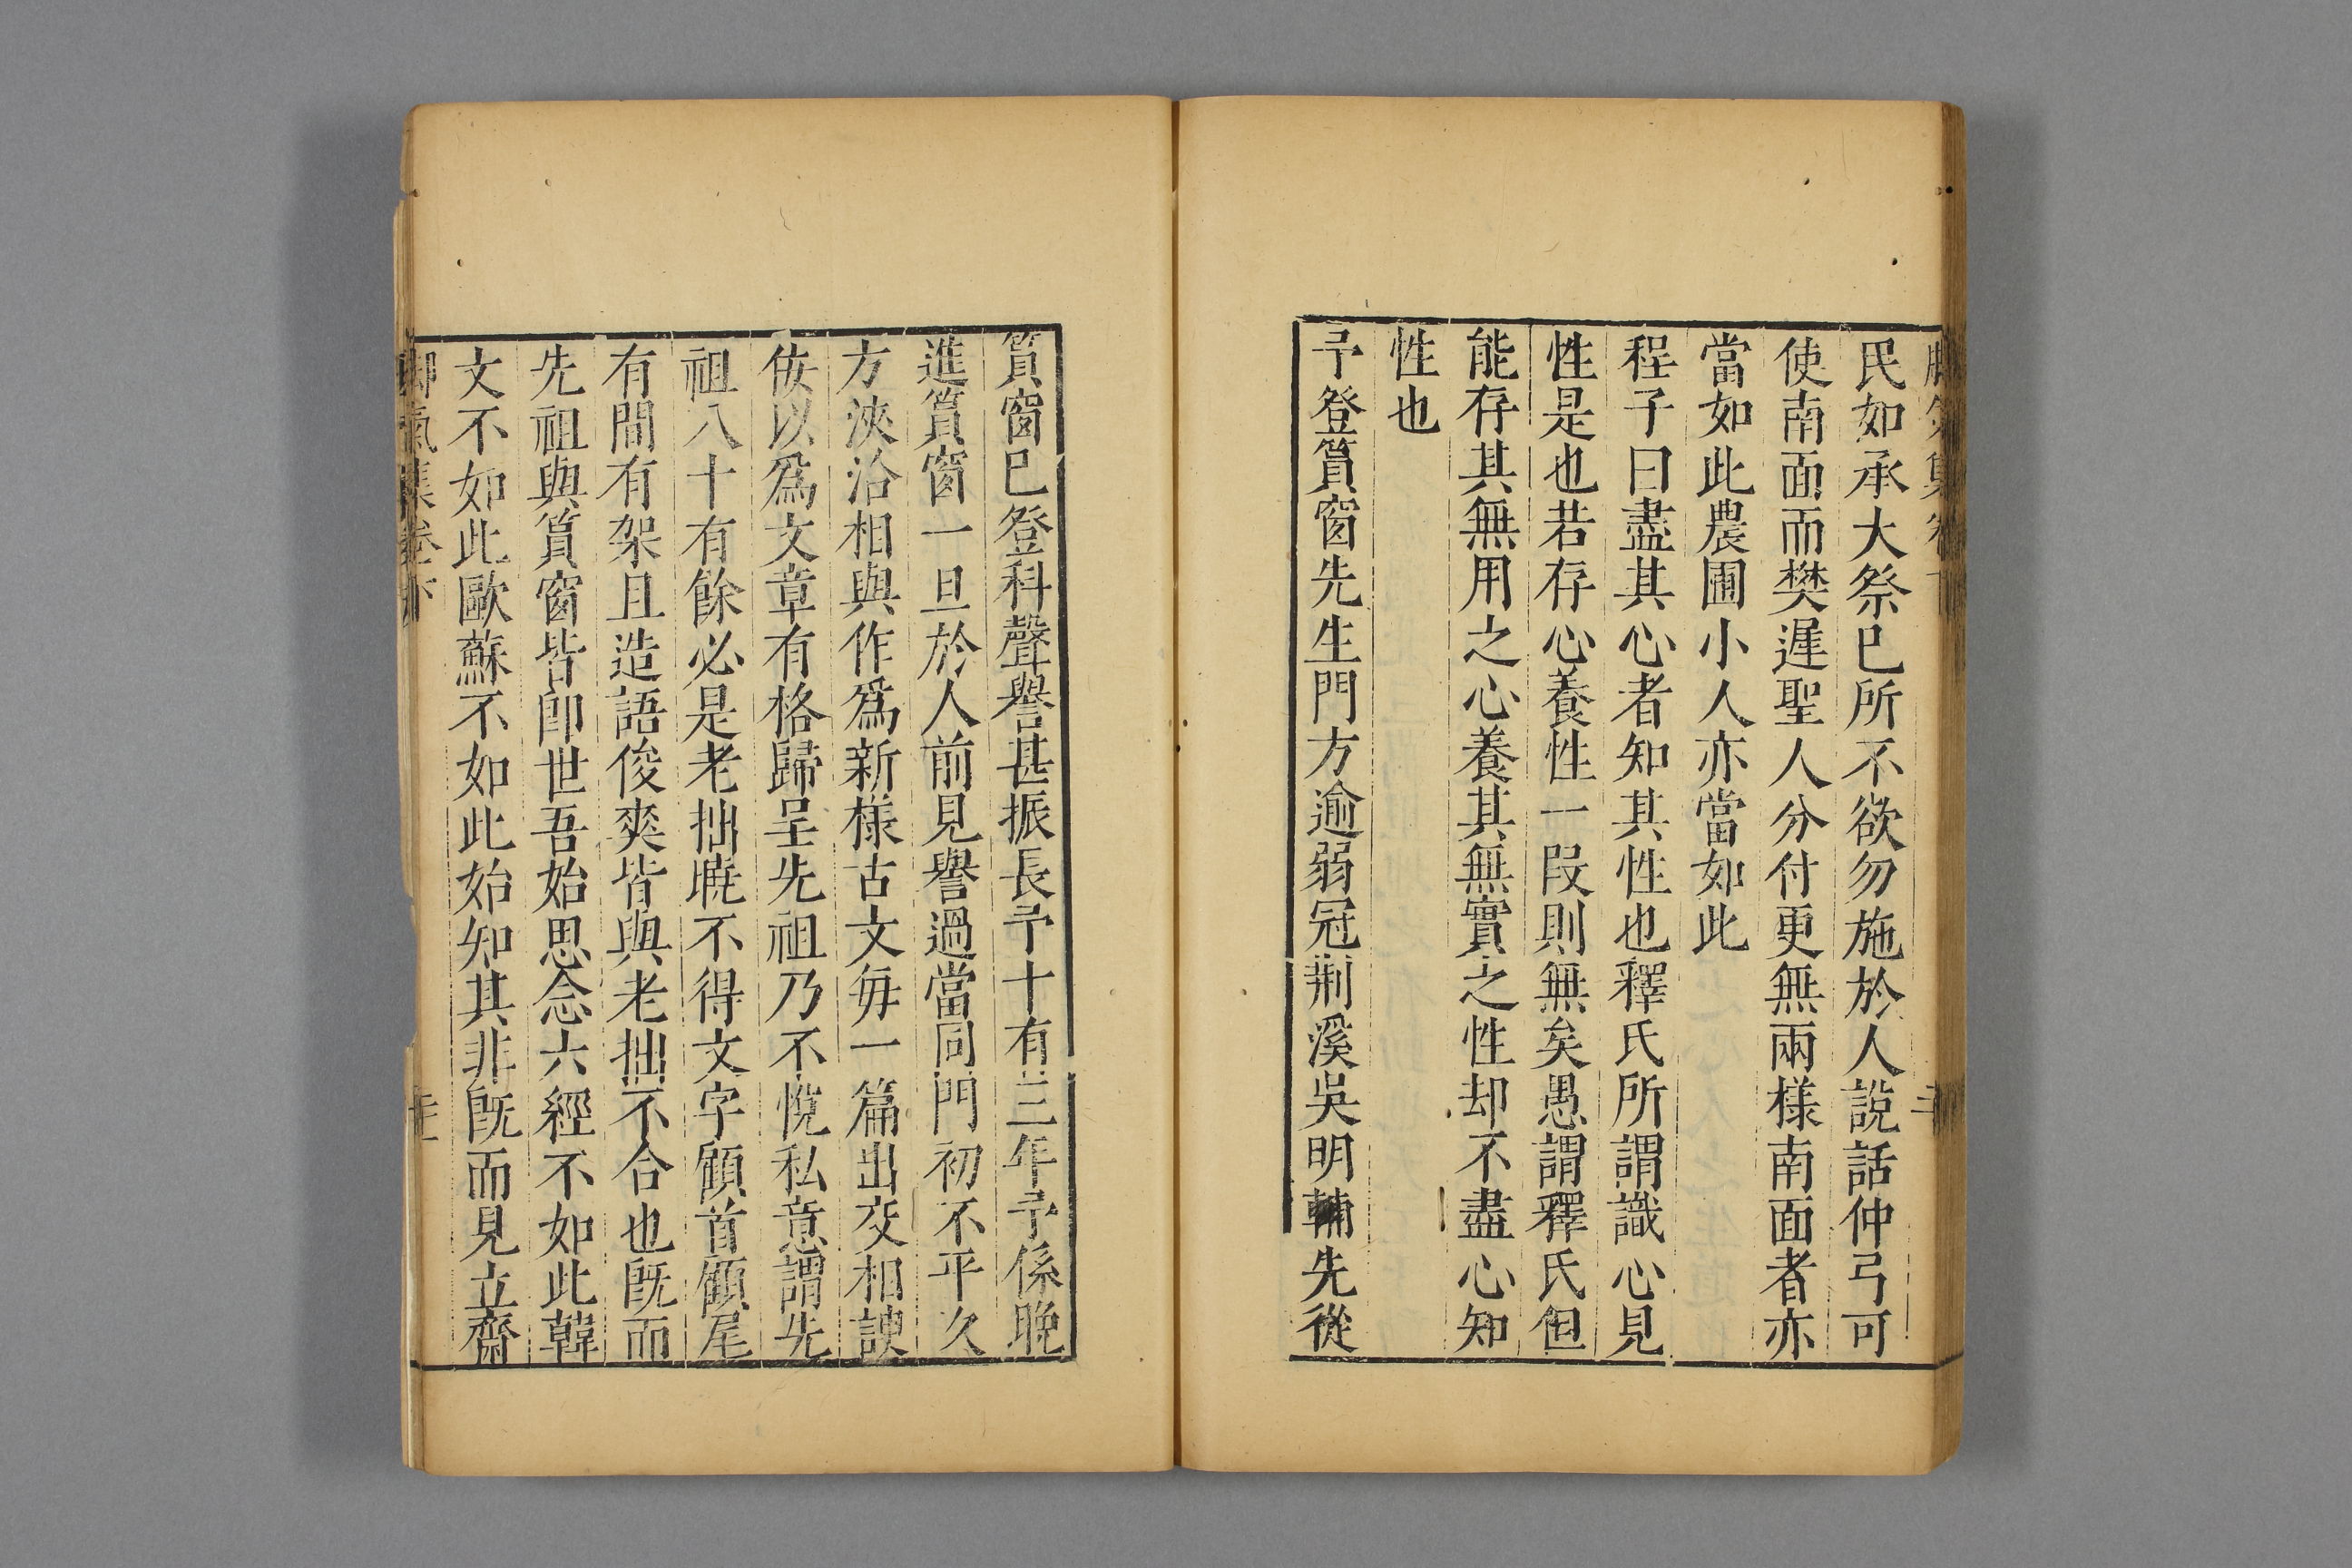 民如承大祭已所不欲勿施於人說話仲弓可
使南面而樊遲聖人分付更無兩樣南面者亦
當如此農圃小人亦當如此
程子曰盡其心者知其性也釋氏所謂識心見
性是也若存心養性一段則無矣愚謂釋氏但
能存其無用之心養其無實之性却不盡心知
性也
予登篔窗先生門方逾弱冠荆溪吳明輔先從
篔窗已登科聲譽甚振長予十有三年予係晚
進篔窗一旦於人前見譽過當同門初不平久
方浹洽相與作爲新樣古文毎一篇出交相諛
佞以爲文章有格歸呈先祖乃不悅私意謂先
祖八十有餘必是老拙曉不得文字顧首顧尾
有間有架且造語俊爽皆與老拙不合也旣而
先祖與篔窗皆卽世吾始思念六經不如此韓
文不如此歐蘇不如此始知其非旣而見立齋
脚氣集卷下